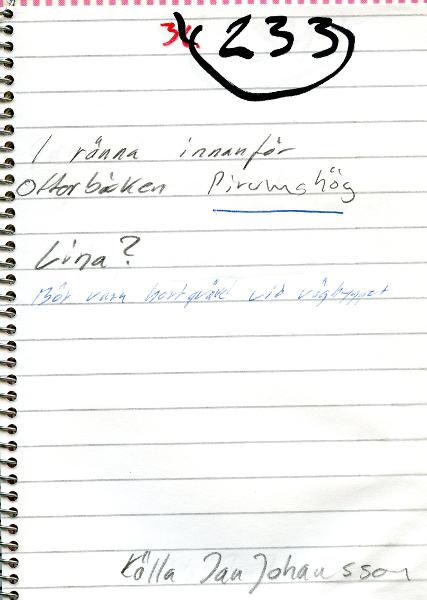 34 233
1 ränna innanför
Otterbäcken Pirumshög
Lina?
Bör vara bortgrävd vid vägbygget
Källa Jan Johansson